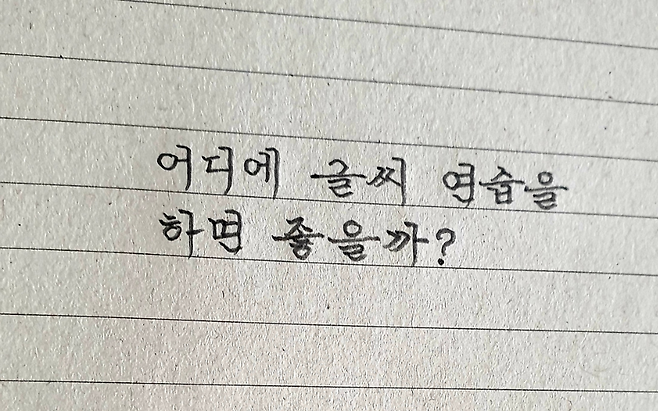 어디에 글씨 연습을
하면 좋을까?